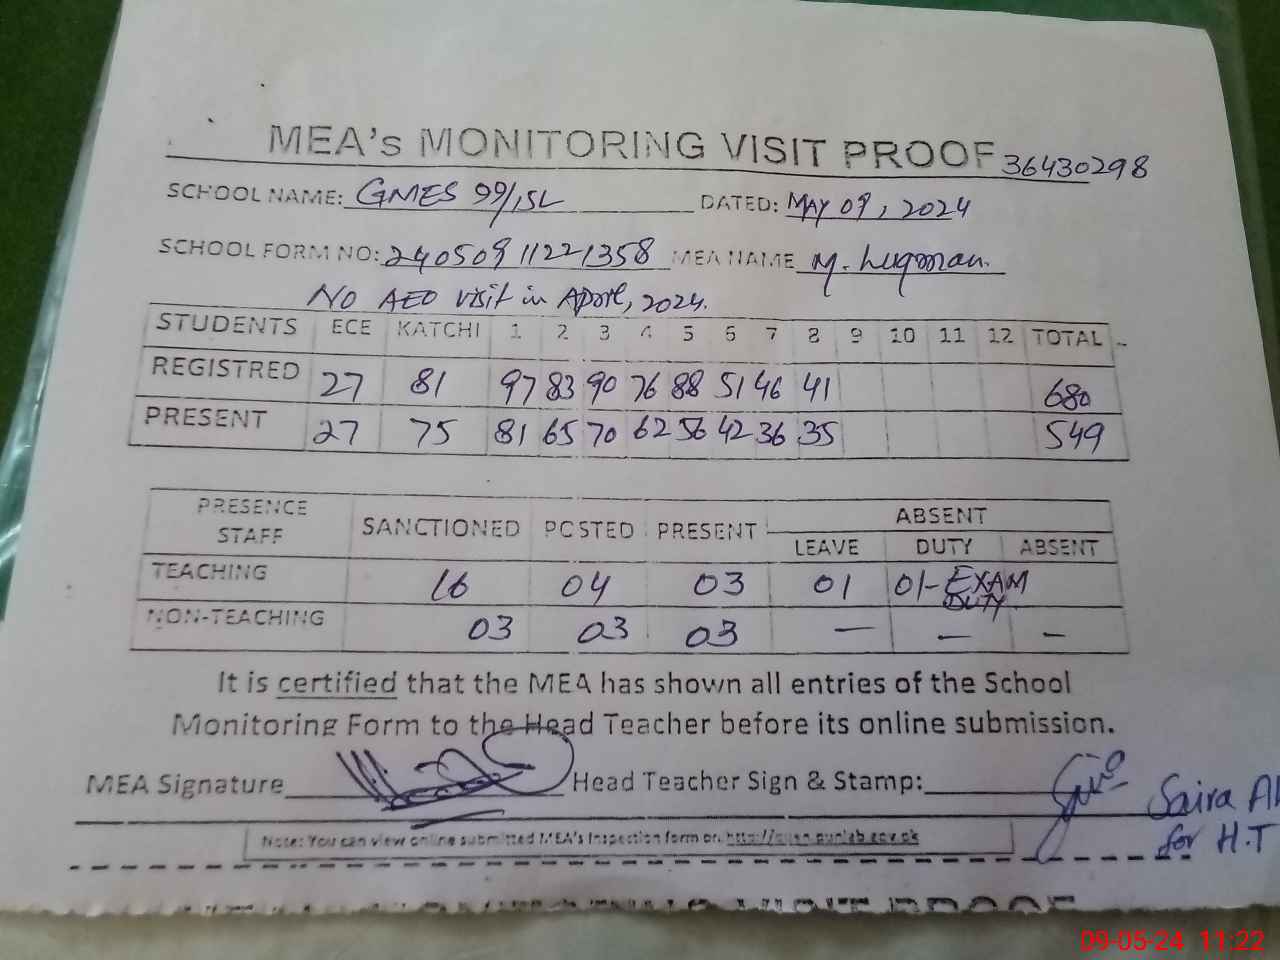 MEA's MONITORING VISIT PROOF 36430298
SCHOOL NAME: GMES 99/15L DATED: MAY 09, 2024
SCHOOL FORM NO: 24050911221358 MEA NAME M. Luqman.
No AEO visit in April, 2024.
STUDENTS ECE KATCHI 1 2 3 4 5 6 7 8 9 10 11 12 TOTAL
REGISTRED 27 81 97 83 90 76 88 51 46 41 680
PRESENT 27 75 81 65 70 62 56 42 36 35 549
PRESENCE STAFF SANCTIONED POSTED PRESENT ABSENT
LEAVE DUTY ABSENT
TEACHING 16 04 03 01 01-EXAM DUTY
NON-TEACHING 03 03 03 — — —
It is certified that the MEA has shown all entries of the School
Monitoring Form to the Head Teacher before its online submission.
MEA Signature Head Teacher Sign & Stamp: Saira
for H.T
Note: You can view online submitted MEA's Inspection form on
MONITORING VISIT PROOF
09-05-24 11:22